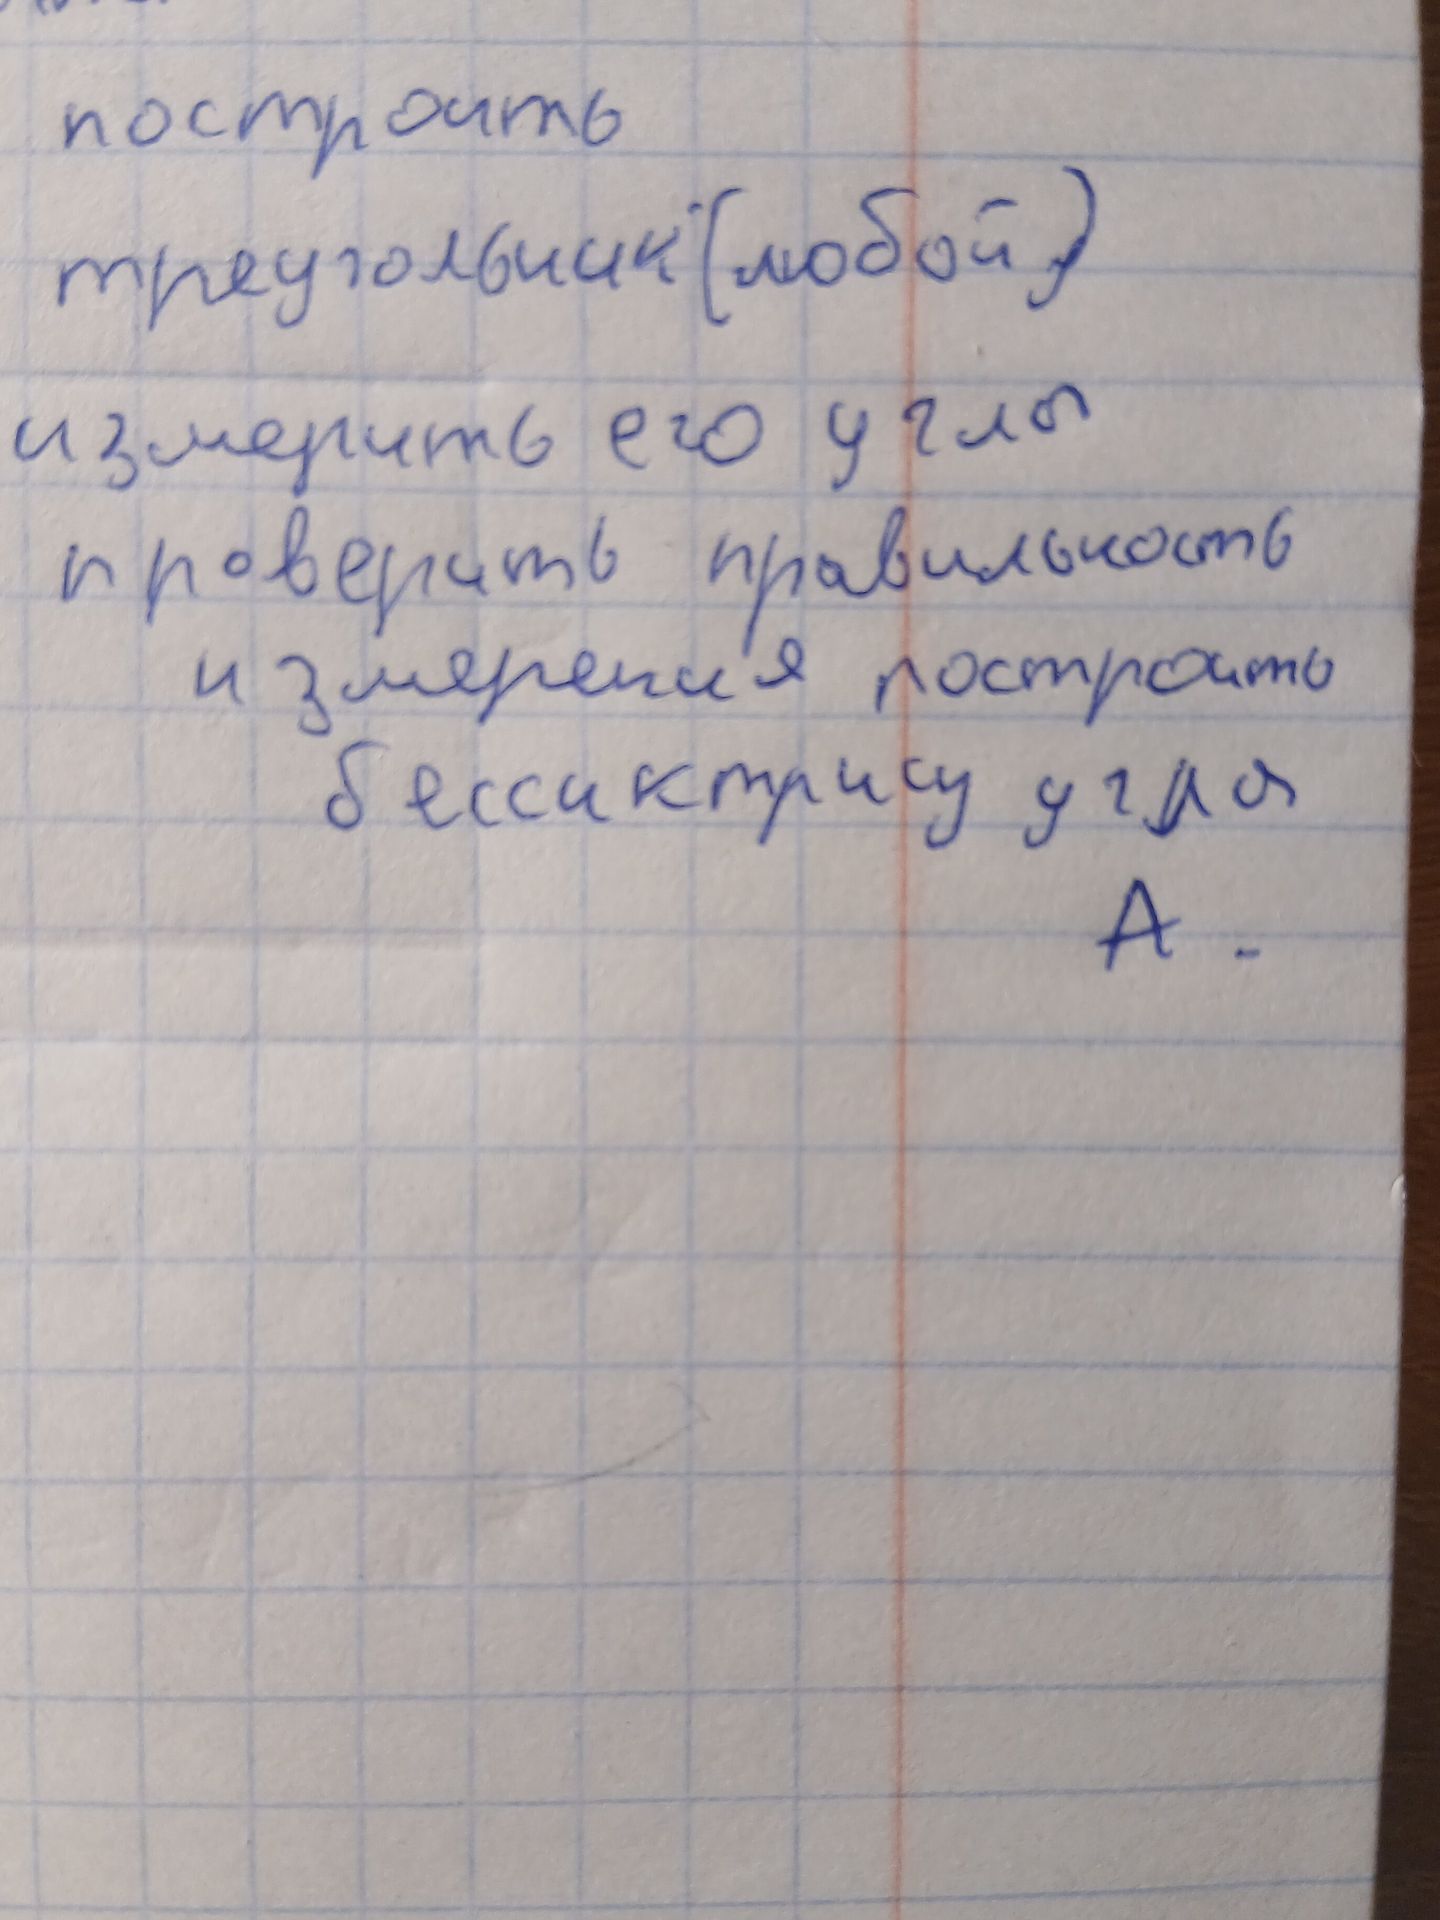 построить
треугольник (любой)
измерить его углы
проверить правильность
измерения построить
бессиктрису угла
А.